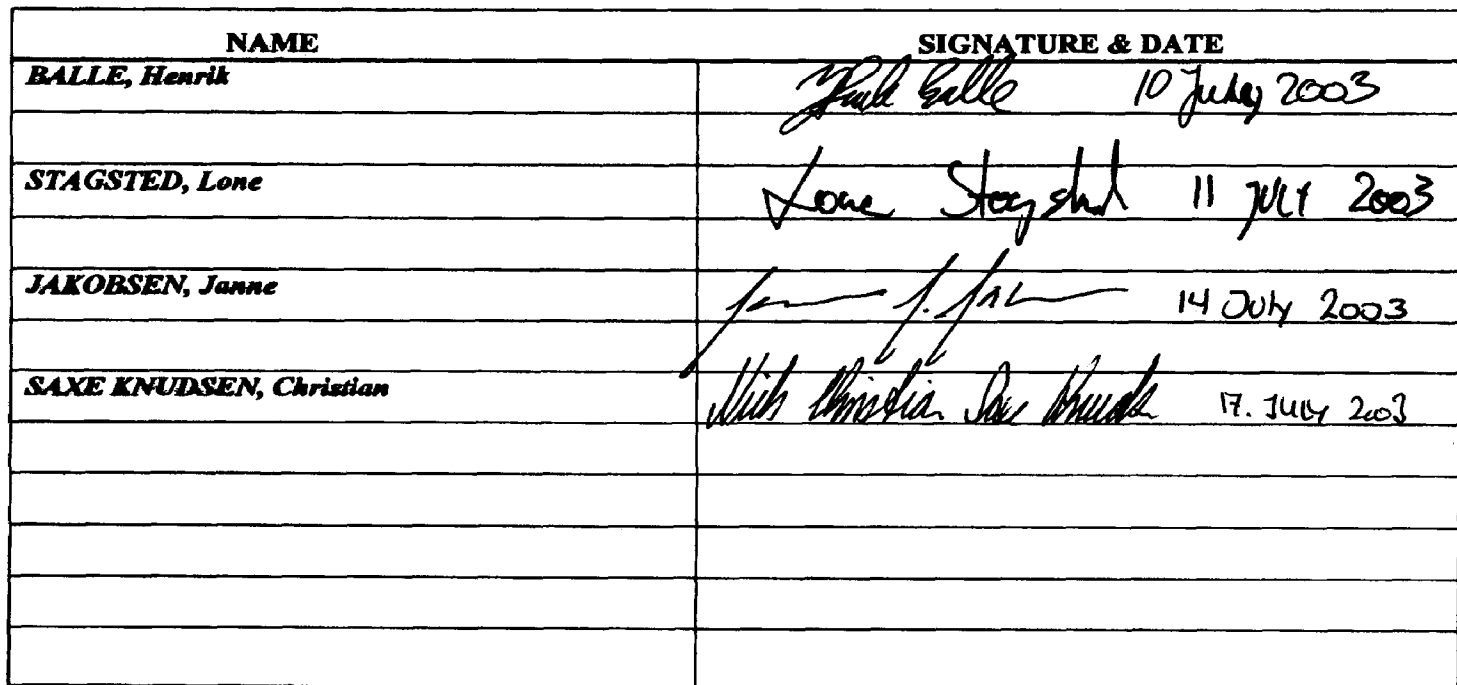 NAME SIGNATURE & DATE
BALLE, Henrik Balle 10 July 2003
STAGSTED, Lone Lone Stagsted 11 JULY 2003
JAKOBSEN, Janne 14 July 2003
SAXE KNUDSEN, Christian Niels Christian Saxe Knudsen 17. JULY 2003